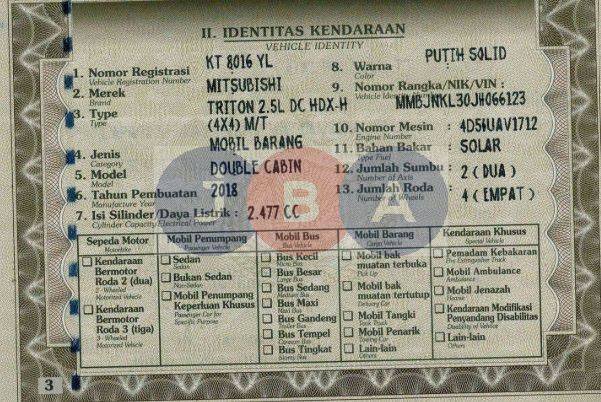 II. IDENTITAS KENDARAAN
VEHICLE IDENTITY
1. Nomor Registrasi KT 8016 YL
Vehicle Registration Number
2. Merek MITSUBISHI
Brand
3. Type TRITON 2.5L DC HDX-H
Type (4X4) M/T
4. Jenis MOBIL BARANG
Category
5. Model DOUBLE CABIN
Model
6. Tahun Pembuatan 2018
Manufacture Year
7. Isi Silinder/Daya Listrik : 2.477 CC
Cylinder Capacity/Electrical Power
8. Warna PUTIH SOLID
Color
9. Nomor Rangka/NIK/VIN :
Vehicle MMBJNKL30JH066123
10. Nomor Mesin : 4D56UAV1712
Engine Number
11. Bahan Bakar : SOLAR
Type Fuel
12. Jumlah Sumbu : 2 (DUA)
Number of Axis
13. Jumlah Roda : 4 (EMPAT)
Number of Wheels
TBA
Sepeda Motor
Motorbike
Kendaraan
Bermotor
Roda 2 (dua)
2 - Wheeled
Motorized Vehicle
Kendaraan
Bermotor
Roda 3 (tiga)
3 - Wheeled
Motorized Vehicle
Mobil Penumpang
Passenger Vehicle
Sedan
Sedan
Bukan Sedan
Non-Sedan
Mobil Penumpang
Keperluan Khusus
Passenger Car for
Specific Purpose
Mobil Bus
Bus Vehicle
Bus Kecil
Micro Bus
Bus Besar
Large Bus
Bus Sedang
Medium Bus
Bus Maxi
Maxi Bus
Bus Gandeng
Trailer Bus
Bus Tempel
Bus Tingkat
Mobil Barang
Cargo Vehicle
Mobil bak
muatan terbuka
Pick Up
Mobil bak
muatan tertutup
Delivery Car
Mobil Tangki
Tank Truck
Mobil Penarik
Towing Car
Lain-lain
Others
Kendaraan Khusus
Special Vehicle
Pemadam Kebakaran
Fire Extinguisher Truck
Mobil Ambulance
Ambulance
Mobil Jenazah
Hearse
Kendaraan Modifikasi
Penyandang Disabilitas
Disability of Vehicle
Lain-lain
Others
3